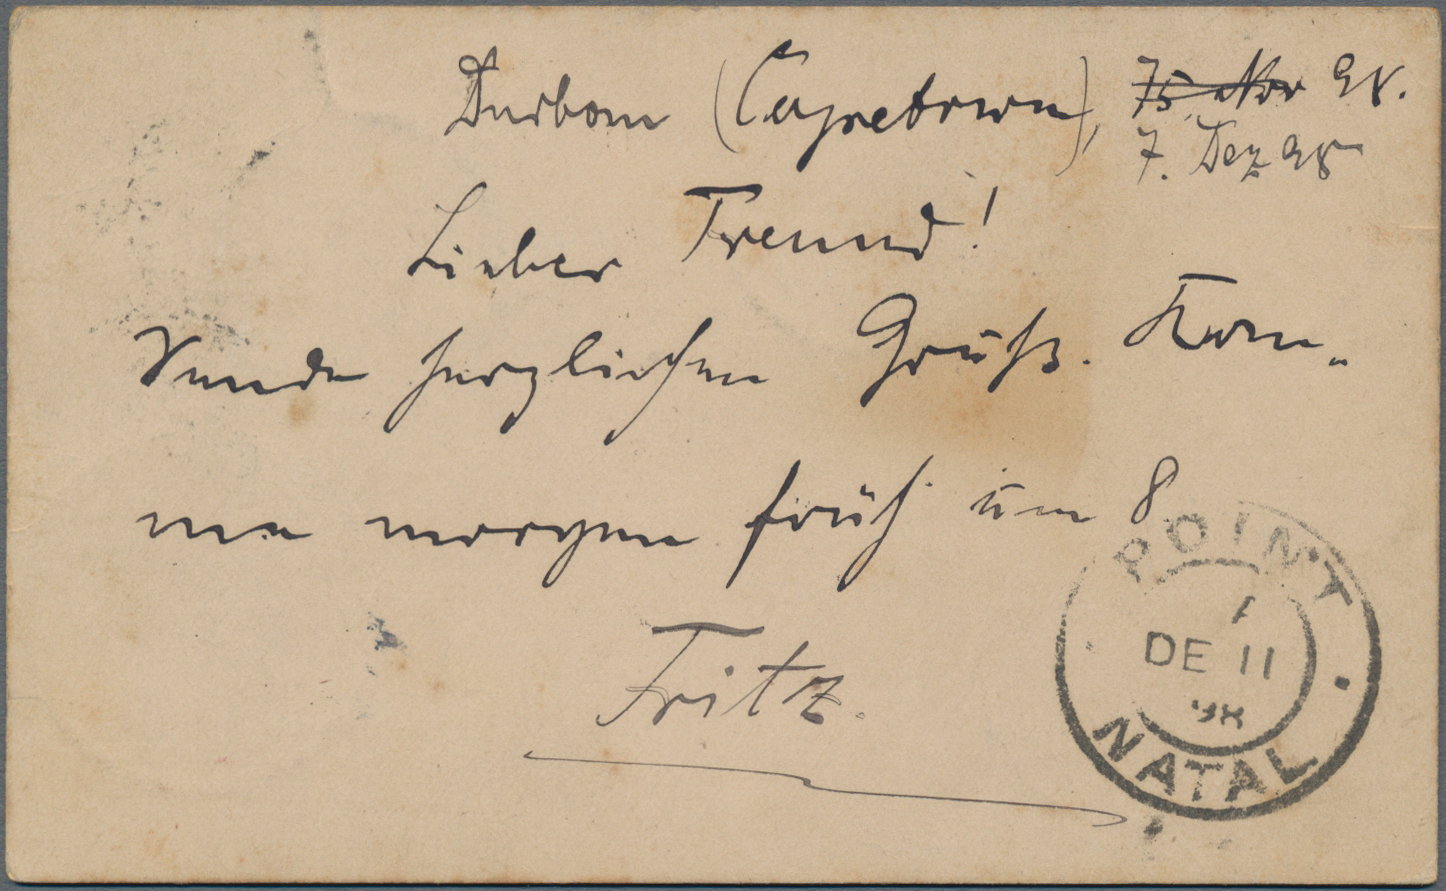 Durban (Capetown), 75 Nov 98.
7. Dez 98
Lieber Freund!
Sende herzlichen Gruß. Kom-
me morgen früh um 8
Fritz.
POINT
A
DE 11
98
NATAL